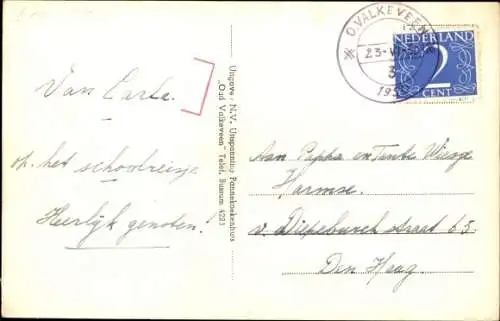 Van Carla.
op het schoolreisje
Heerlijk genoten!
Uitgave: N.V. Uitspanning Pannekoekenhuis
"Oud Valkeveen" Telef. Bussum 4223
O.VALKEVEEN
NEDERLAND
2
CENT
Aan Pappa en Tante Wiesje
Harmse.
v. Diepeburch straat 65
Den Haag.